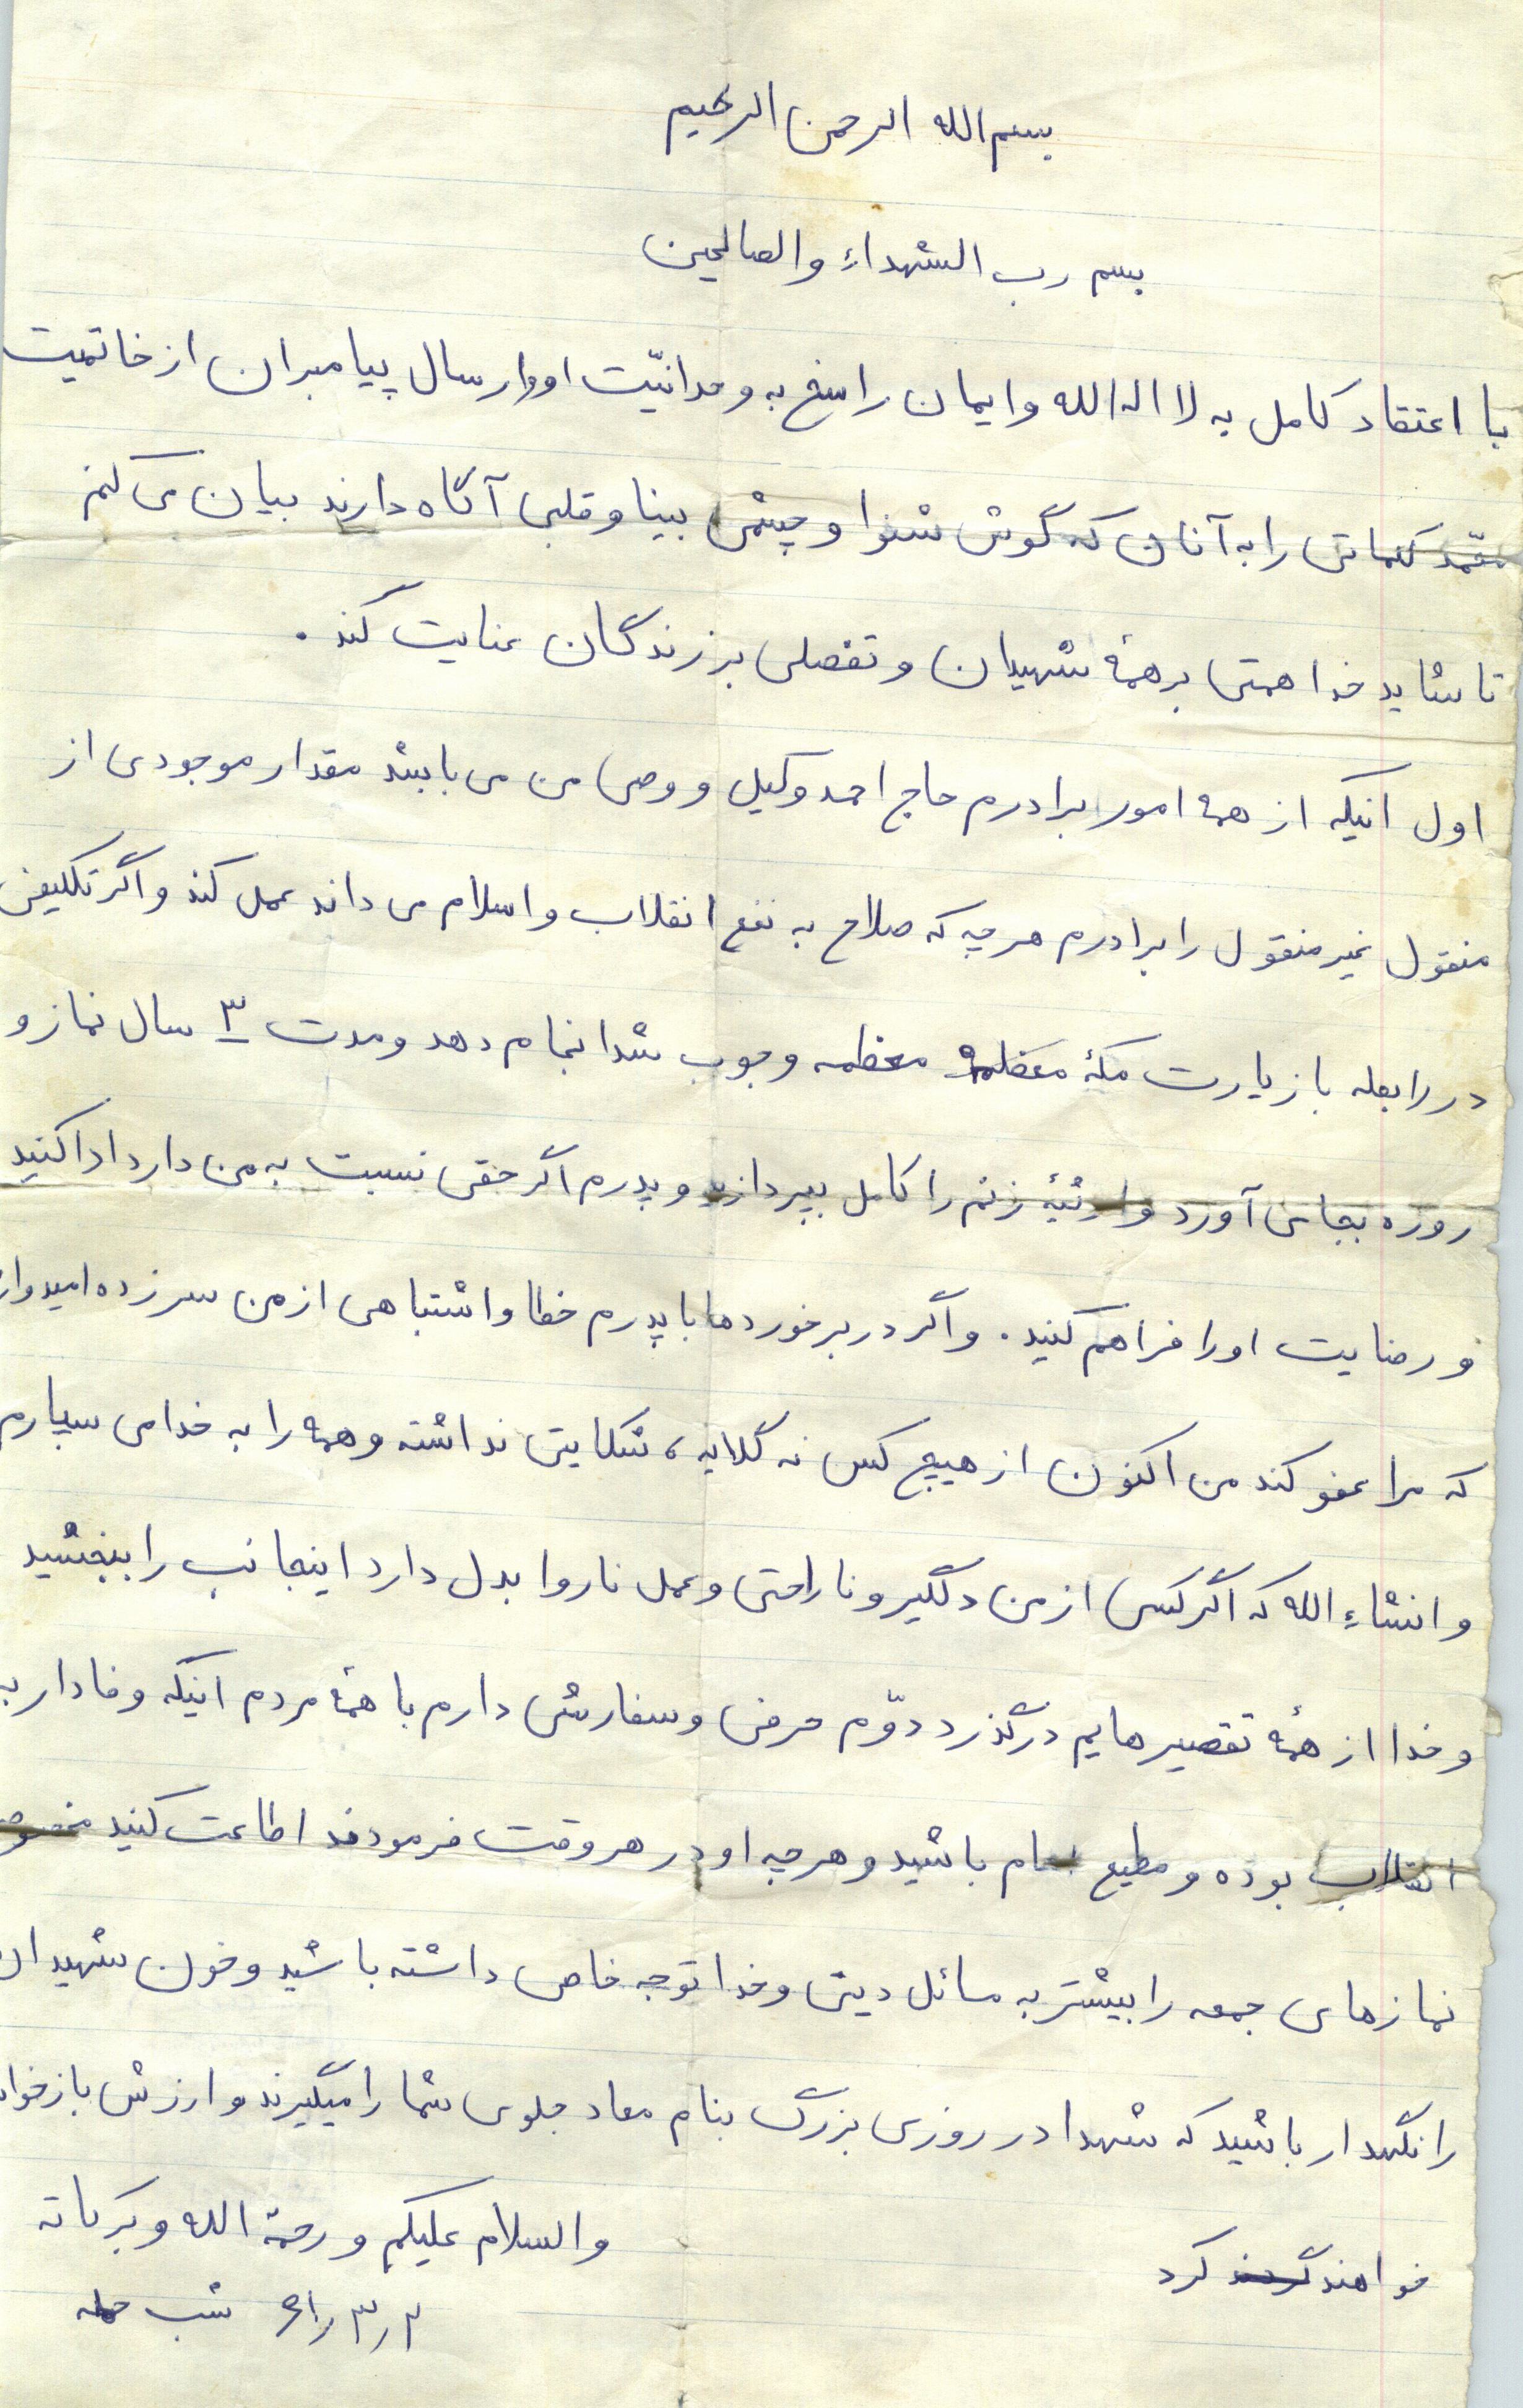 بسم الله الرحمن الرحیم
بسم رب الشهداء والصالحین
با اعتقاد کامل به لا اله الله وایمان راسخ به وحدانیّت او وارسال پیامبران از خاتمیت
محمّد کلماتی را به آنان که گوش شنوا و چشمی بینا و قلبی آگاه دارند بیان می کنم
تا شاید خدا همتی بر همهٔ شهیدان و تفضلی بر زندگان عنایت کند .
اول اینکه از همهٔ امور برادرم حاج احمد وکیل و وصی من می باشد مقدار موجودی از
منقول غیر منقول را برادرم هر چه که صلاح به نفع انقلاب و اسلام می داند عمل کند و اگر تکلیفی
در رابطه با زیارت مکهٔ معظمه وجوب شد انجام دهد و مدت ۳ سال نماز و
روزه بجای آورد و ارثیهٔ زنم را کامل بپردازید و پدرم اگر حقی نسبت به من دارد ادا کنید
و رضایت او را فراهم کنید . و اگر در برخوردها با پدرم خطا و اشتباهی از من سر زده امیدوارم
که مرا عفو کند من اکنون از هیچ کس نه گلایه ، شکایتی نداشته و همه را به خدا می سپارم
و انشاء الله که اگر کسی از من دلگیر و ناراحتی و عمل ناروا بدل دارد اینجانب را ببخشید
و خدا از همهٔ تقصیرهایم درگذرد دوّم حرفی و سفارشی دارم با همهٔ مردم اینکه وفادار به
انقلاب بوده و مطیع امام باشید و هر چه او در هر وقت فرمودند اطاعت کنید
نمازهای جمعه را بیشتر به مسائل دینی و خدا توجه خاص داشته باشید و خون شهیدان
را نگهدار باشید که شهدا در روزی بزرگ بنام معاد جلوی شما را میگیرند و ارزش باز خواست
خواهند کرد
والسلام علیکم و رحمة الله و برکاته
شب حمله